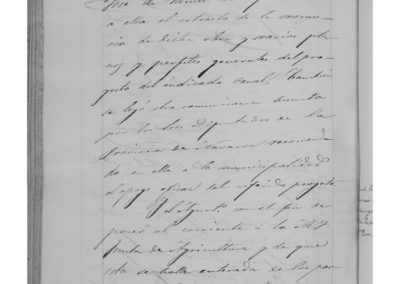 á ella el extracto de la memo
ria de dicha obra y varios pla
nos y perfiles generales del pro
yecto del indicado canal, tambien
se leyó la comunicacion suscrita
por los Sres Diputados de la
Provincia de Navarra recomendan
do en ella á la municipalidad
el apoyo eficaz del referido proyecto
El Ayunt.º con el fin de
poner al corriente á la
Junta de Agricultura y de que
esta se halle enterada de los por